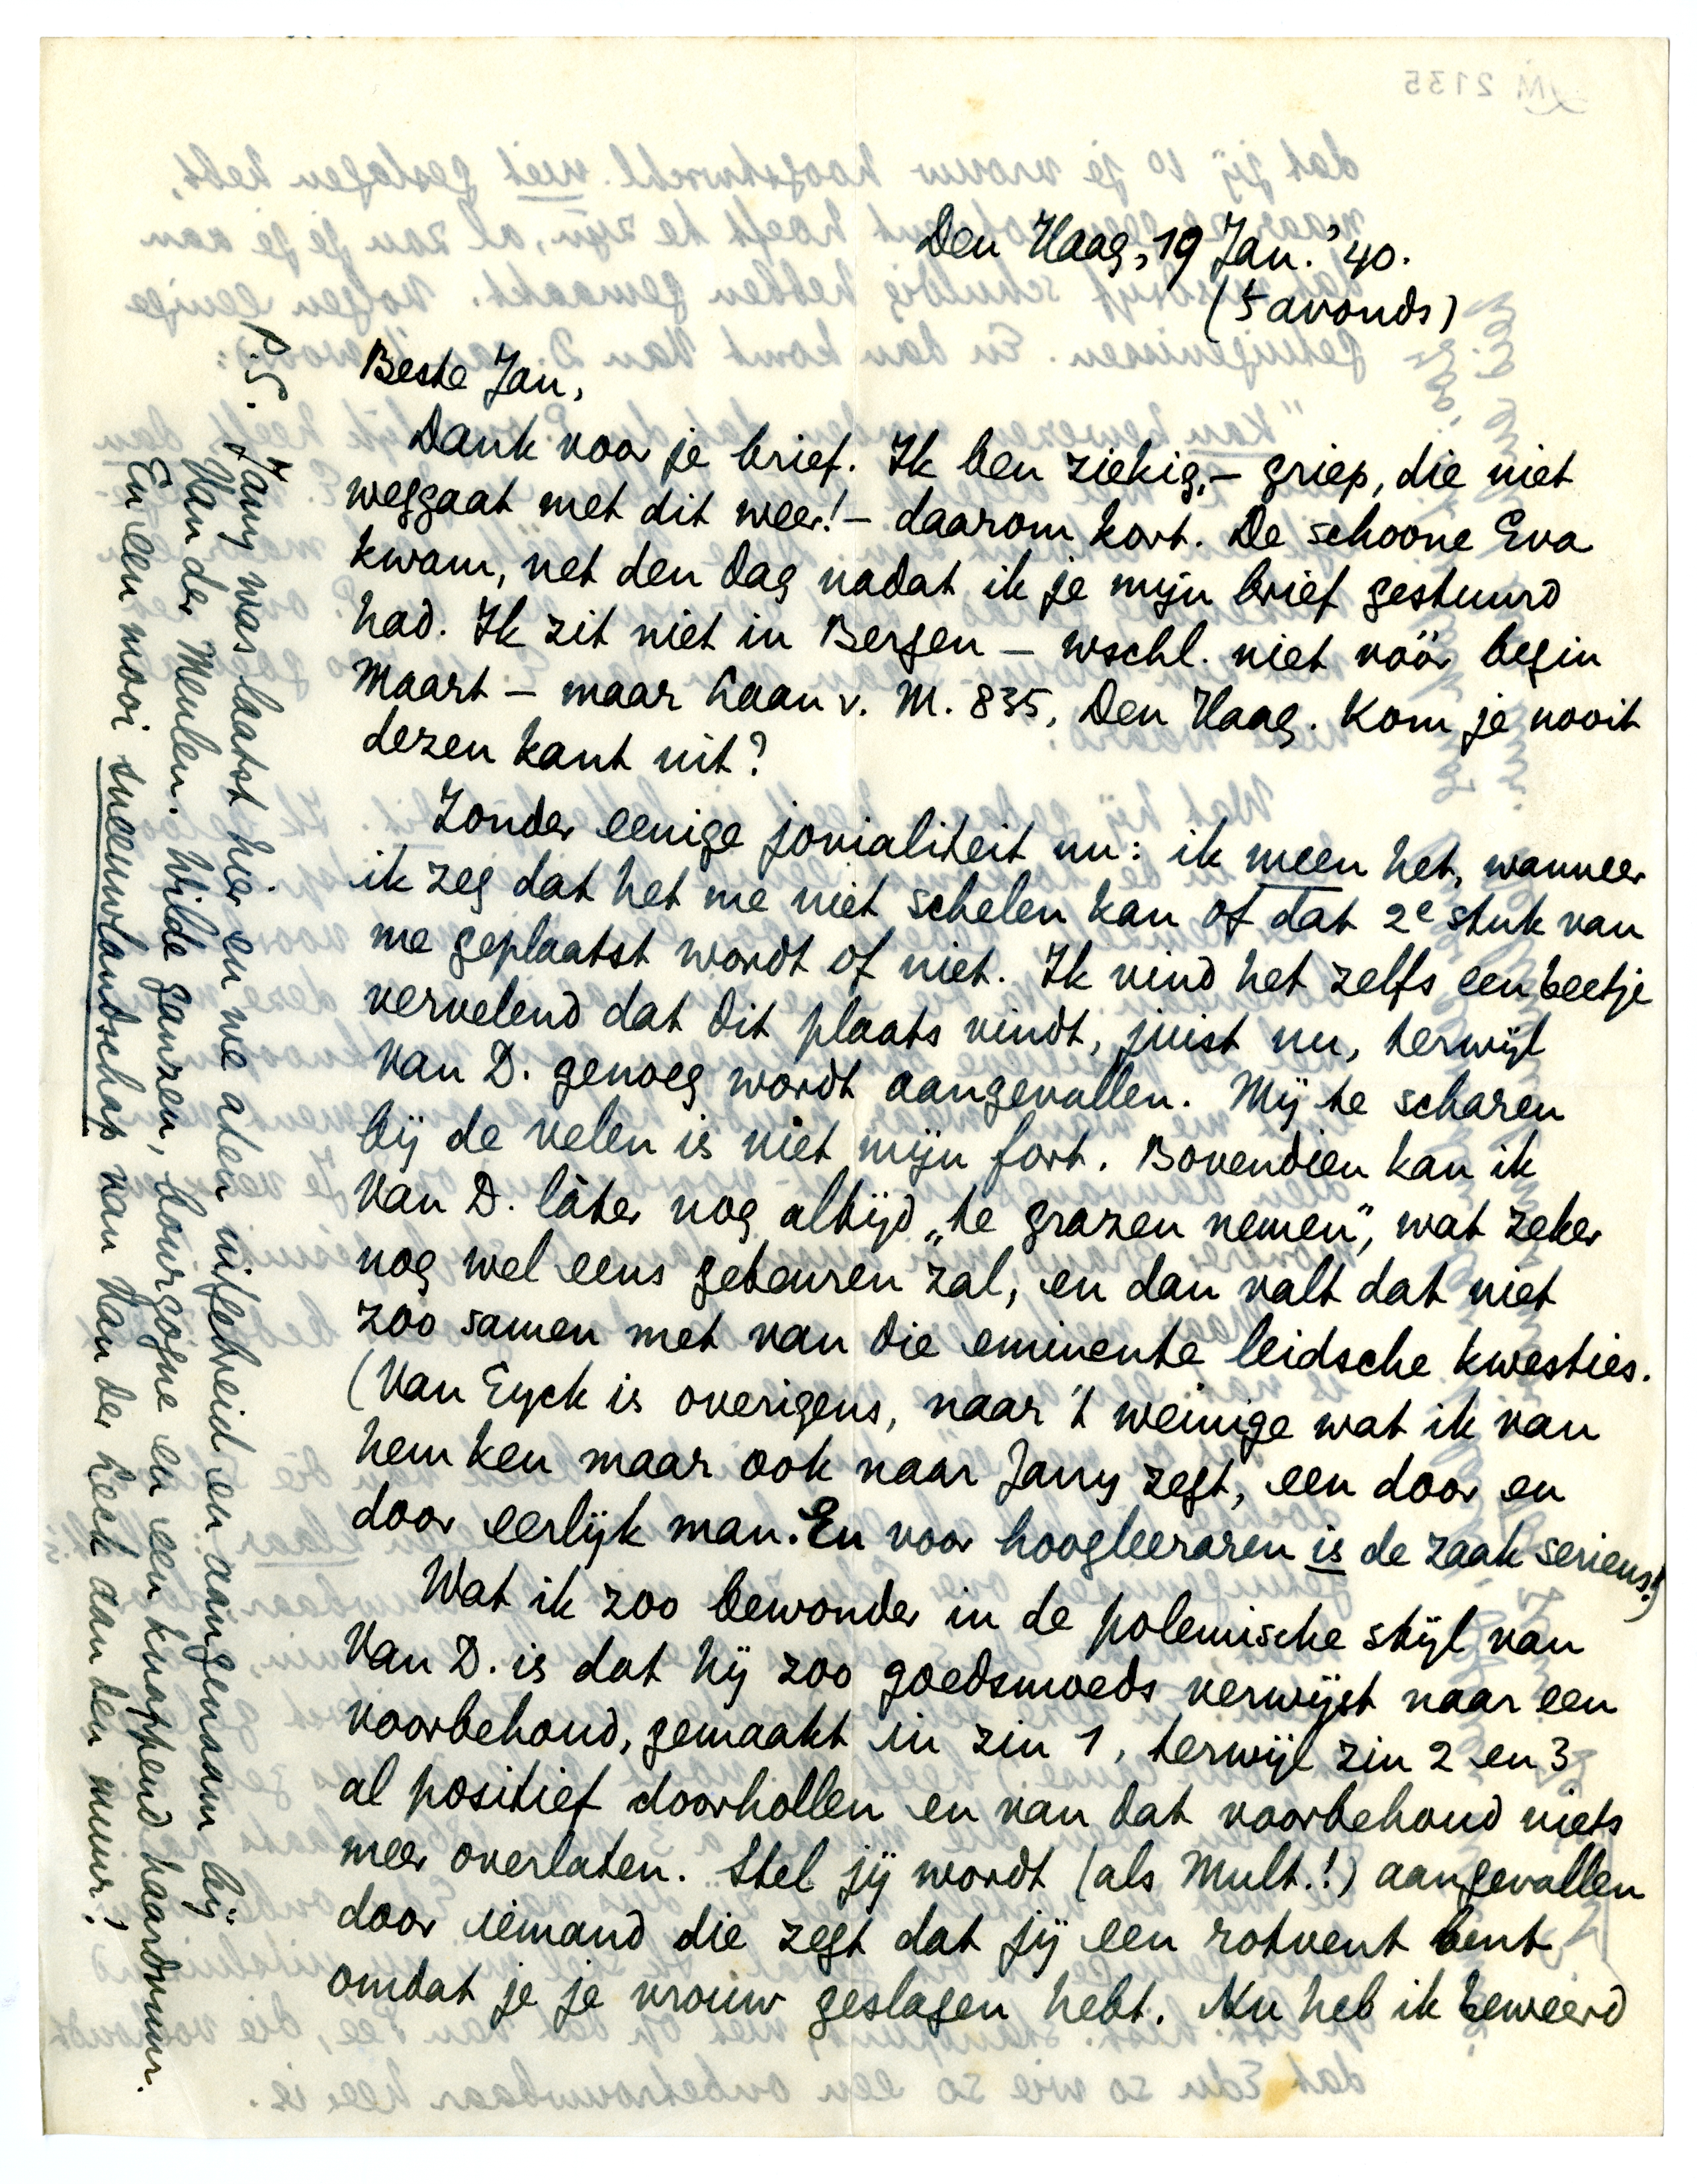 Den Haag, 19 Jan. '40.
('s avonds)
Beste Jan,
Dank voor je brief. Ik ben ziekig, – griep, die niet
weggaat met dit weer! – daarom kort. De schoone Eva
kwam, net den dag nadat ik je mijn brief gestuurd
had. Ik zit niet in Bergen – wschl. niet vóór begin
Maart – maar Laan v. M. 835, Den Haag. Kom je nooit
dezen kant uit?
Zonder eenige jovialiteit nu: ik meen het, wanneer
ik zeg dat het me niet schelen kan of dat 2e stuk van
me geplaatst wordt of niet. Ik vind het zelfs een beetje
vervelend dat dit plaats vindt, juist nu, terwijl
Van D. genoeg wordt aangevallen. Mij te scharen
bij de velen is niet mijn fort. Bovendien kan ik
Van D. láter nog altijd „te grazen nemen", wat zeker
nog wel eens gebeuren zal, en dan valt dat niet
zoo samen met van die eminente leidsche kwesties.
(Van Eyck is overigens, naar 't weinige wat ik van
hem ken maar ook naar Jany zegt, een door en
door eerlijk man. En voor hoogleeraren is de zaak serieus!)
Wat ik zoo bewonder in de polemische stijl van
Van D. is dat hij zoo goedsmoeds verwijst naar een
voorbehoud, gemaakt in zin 1, terwijl zin 2 en 3
al positief doorhollen en van dat voorbehoud niets
meer overlaten. Stel jij wordt (als Mult.!) aangevallen
door iemand die zegt dat jij een rotvent bent
omdat je je vrouw geslagen hebt. Nu heb ik beweerd
P.S. Jany was laatst hier en we aten uitgebreid en aangenaam bij
Van der Meulen. Wilde ganzen, bourgogne en een knappend haardvuur.
En een mooi sneeuwlandschap van Van der Leck aan den muur!
M 2135